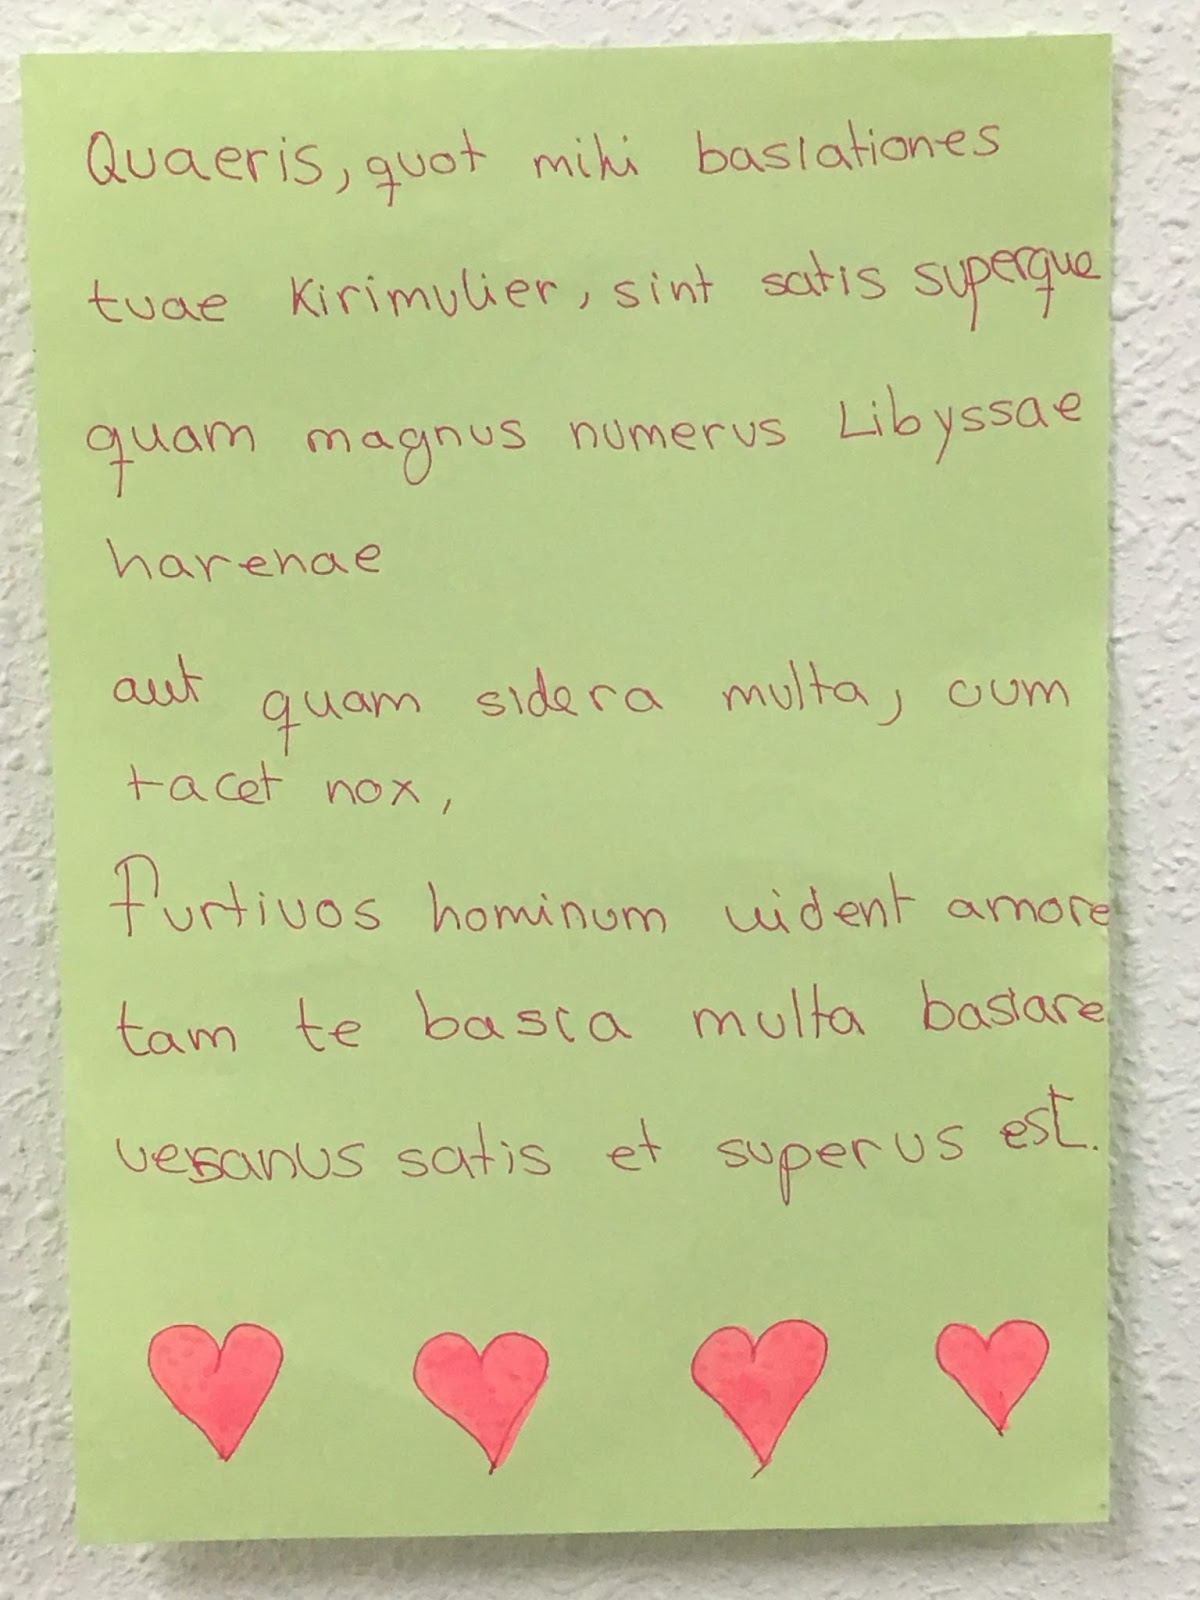 Quaeris, quot mihi basiationes
tuae Kirimulier, sint satis superque
quam magnus numerus Libyssae
harenae
aut quam sidera multa, cum
tacet nox,
Furtivos hominum uident amore
tam te basia multa basiare
vesanus satis et superus est.